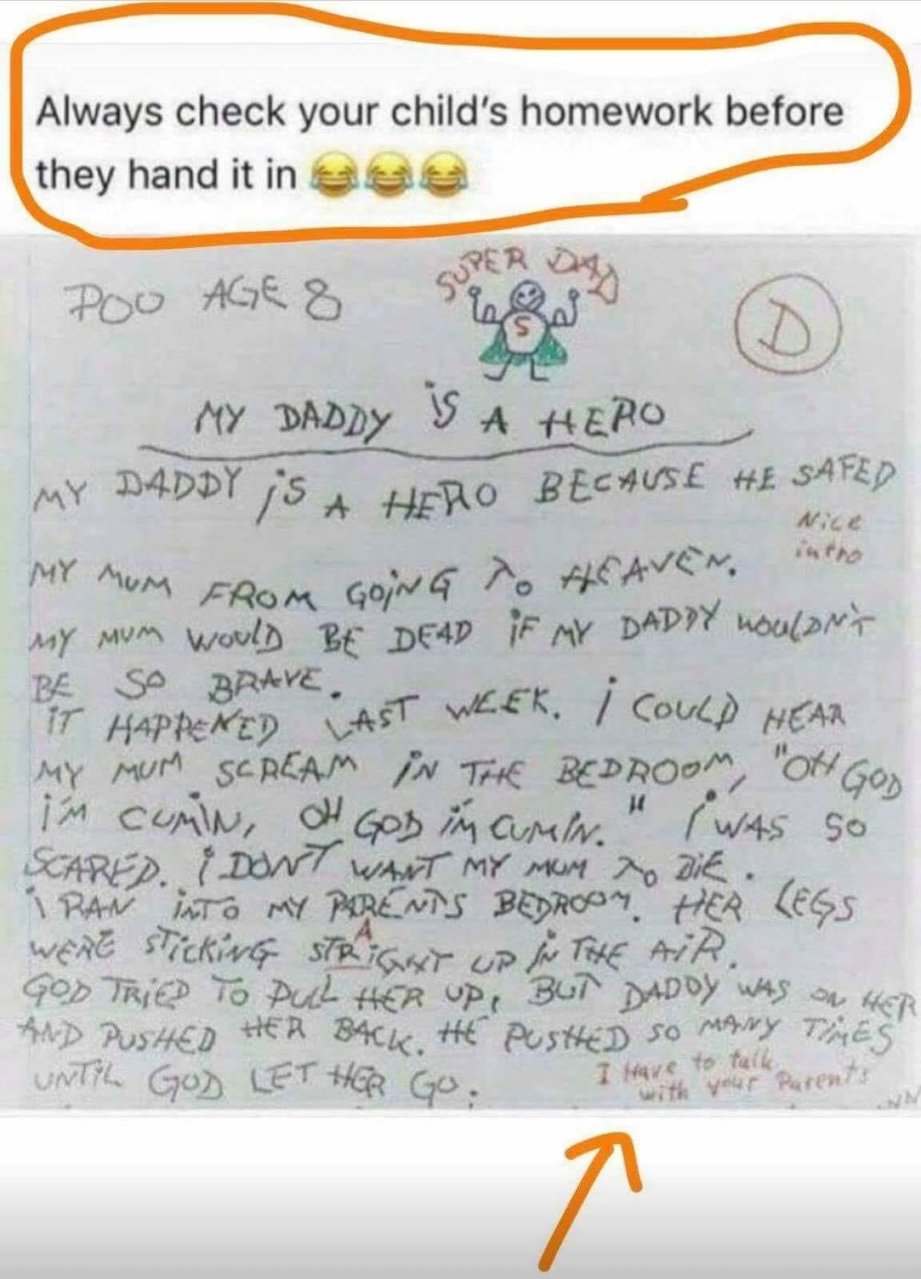 Always check your child's homework before
they hand it in 😂😂😂
SUPER DAD
POO AGE 8
S
D
MY DADDY iS A HERO
MY DADDY iS A HERO BECAUSE HE SAFED
Nice
intro
MY MUM FROM GOiNG To HEAVEN.
MY MUM WOULD BE DEAD iF MY DADDY WOULDN'T
BE SO BRAVE.
iT HAPPENED LAST WEEK. i COULD HEAR
MY MUM SCREAM iN THE BEDROOM, "OH GOD
i'M CUMiN, OH GOD i'M CUMiN." i WAS SO
SCARED. i DON'T WANT MY MUM To DiE.
i RAN iNTO MY PARENTS BEDROOM. HER LEGS
A
WERE STiCKiNG STRiGHT UP iN THE AiR.
GOD TRiED TO PULL HER UP, BUT DADDY WAS ON HER
AND PUSHED HER BACK. HE PUSHED SO MANY TiMES
UNTiL GOD LET HER GO.
I Have to talk
with your Parents